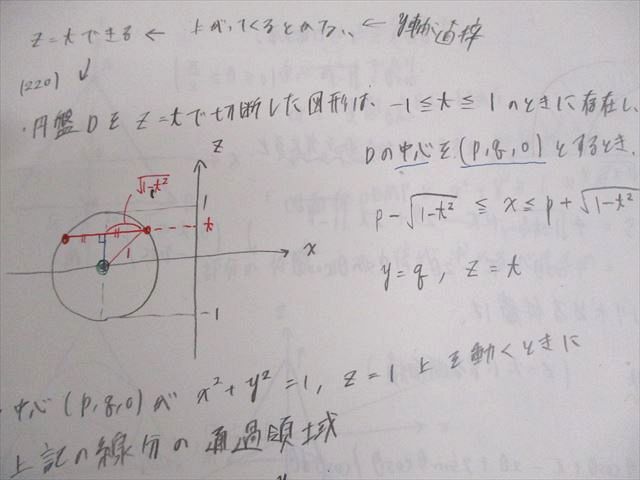 z=tできる ← 上がってくるとかない、 ← y軸が直接
(220) ↓
・円盤Dを z=t で切断した図形は、 -1≦t≦1 のときに存在し、
Dの中心を(p,q,0)とするとき、
p-√1-t² ≦ x ≦ p+√1-t²
y=q, z=t
z
√1-t²
1
t
1
x
-1
・中心(p,q,0)が x²+y²=1, z=1 上を動くときに
上記の線分の通過領域